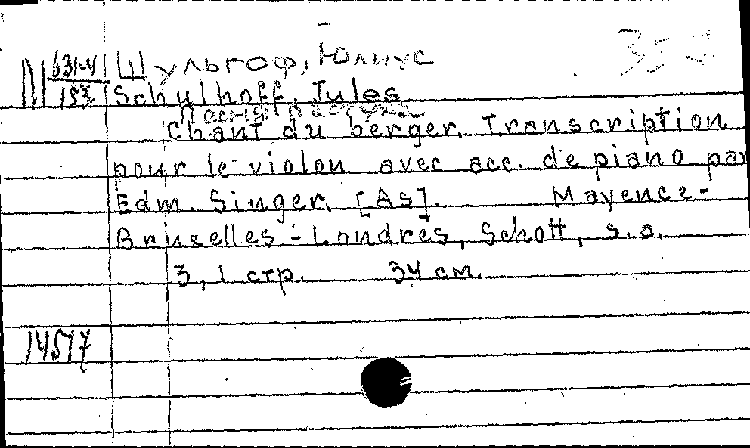 Шульгоф, Юлиус
М 631-4
153
Schulhoff, Jules
Песня пастуха
Chant du berger. Transcription
pour le violon avec acc. de piano par
Edm. Singer. [As]. Mayence-
Bruxelles-Londres, Schott, s.a.
3, 1 стр. 34 см.
14517